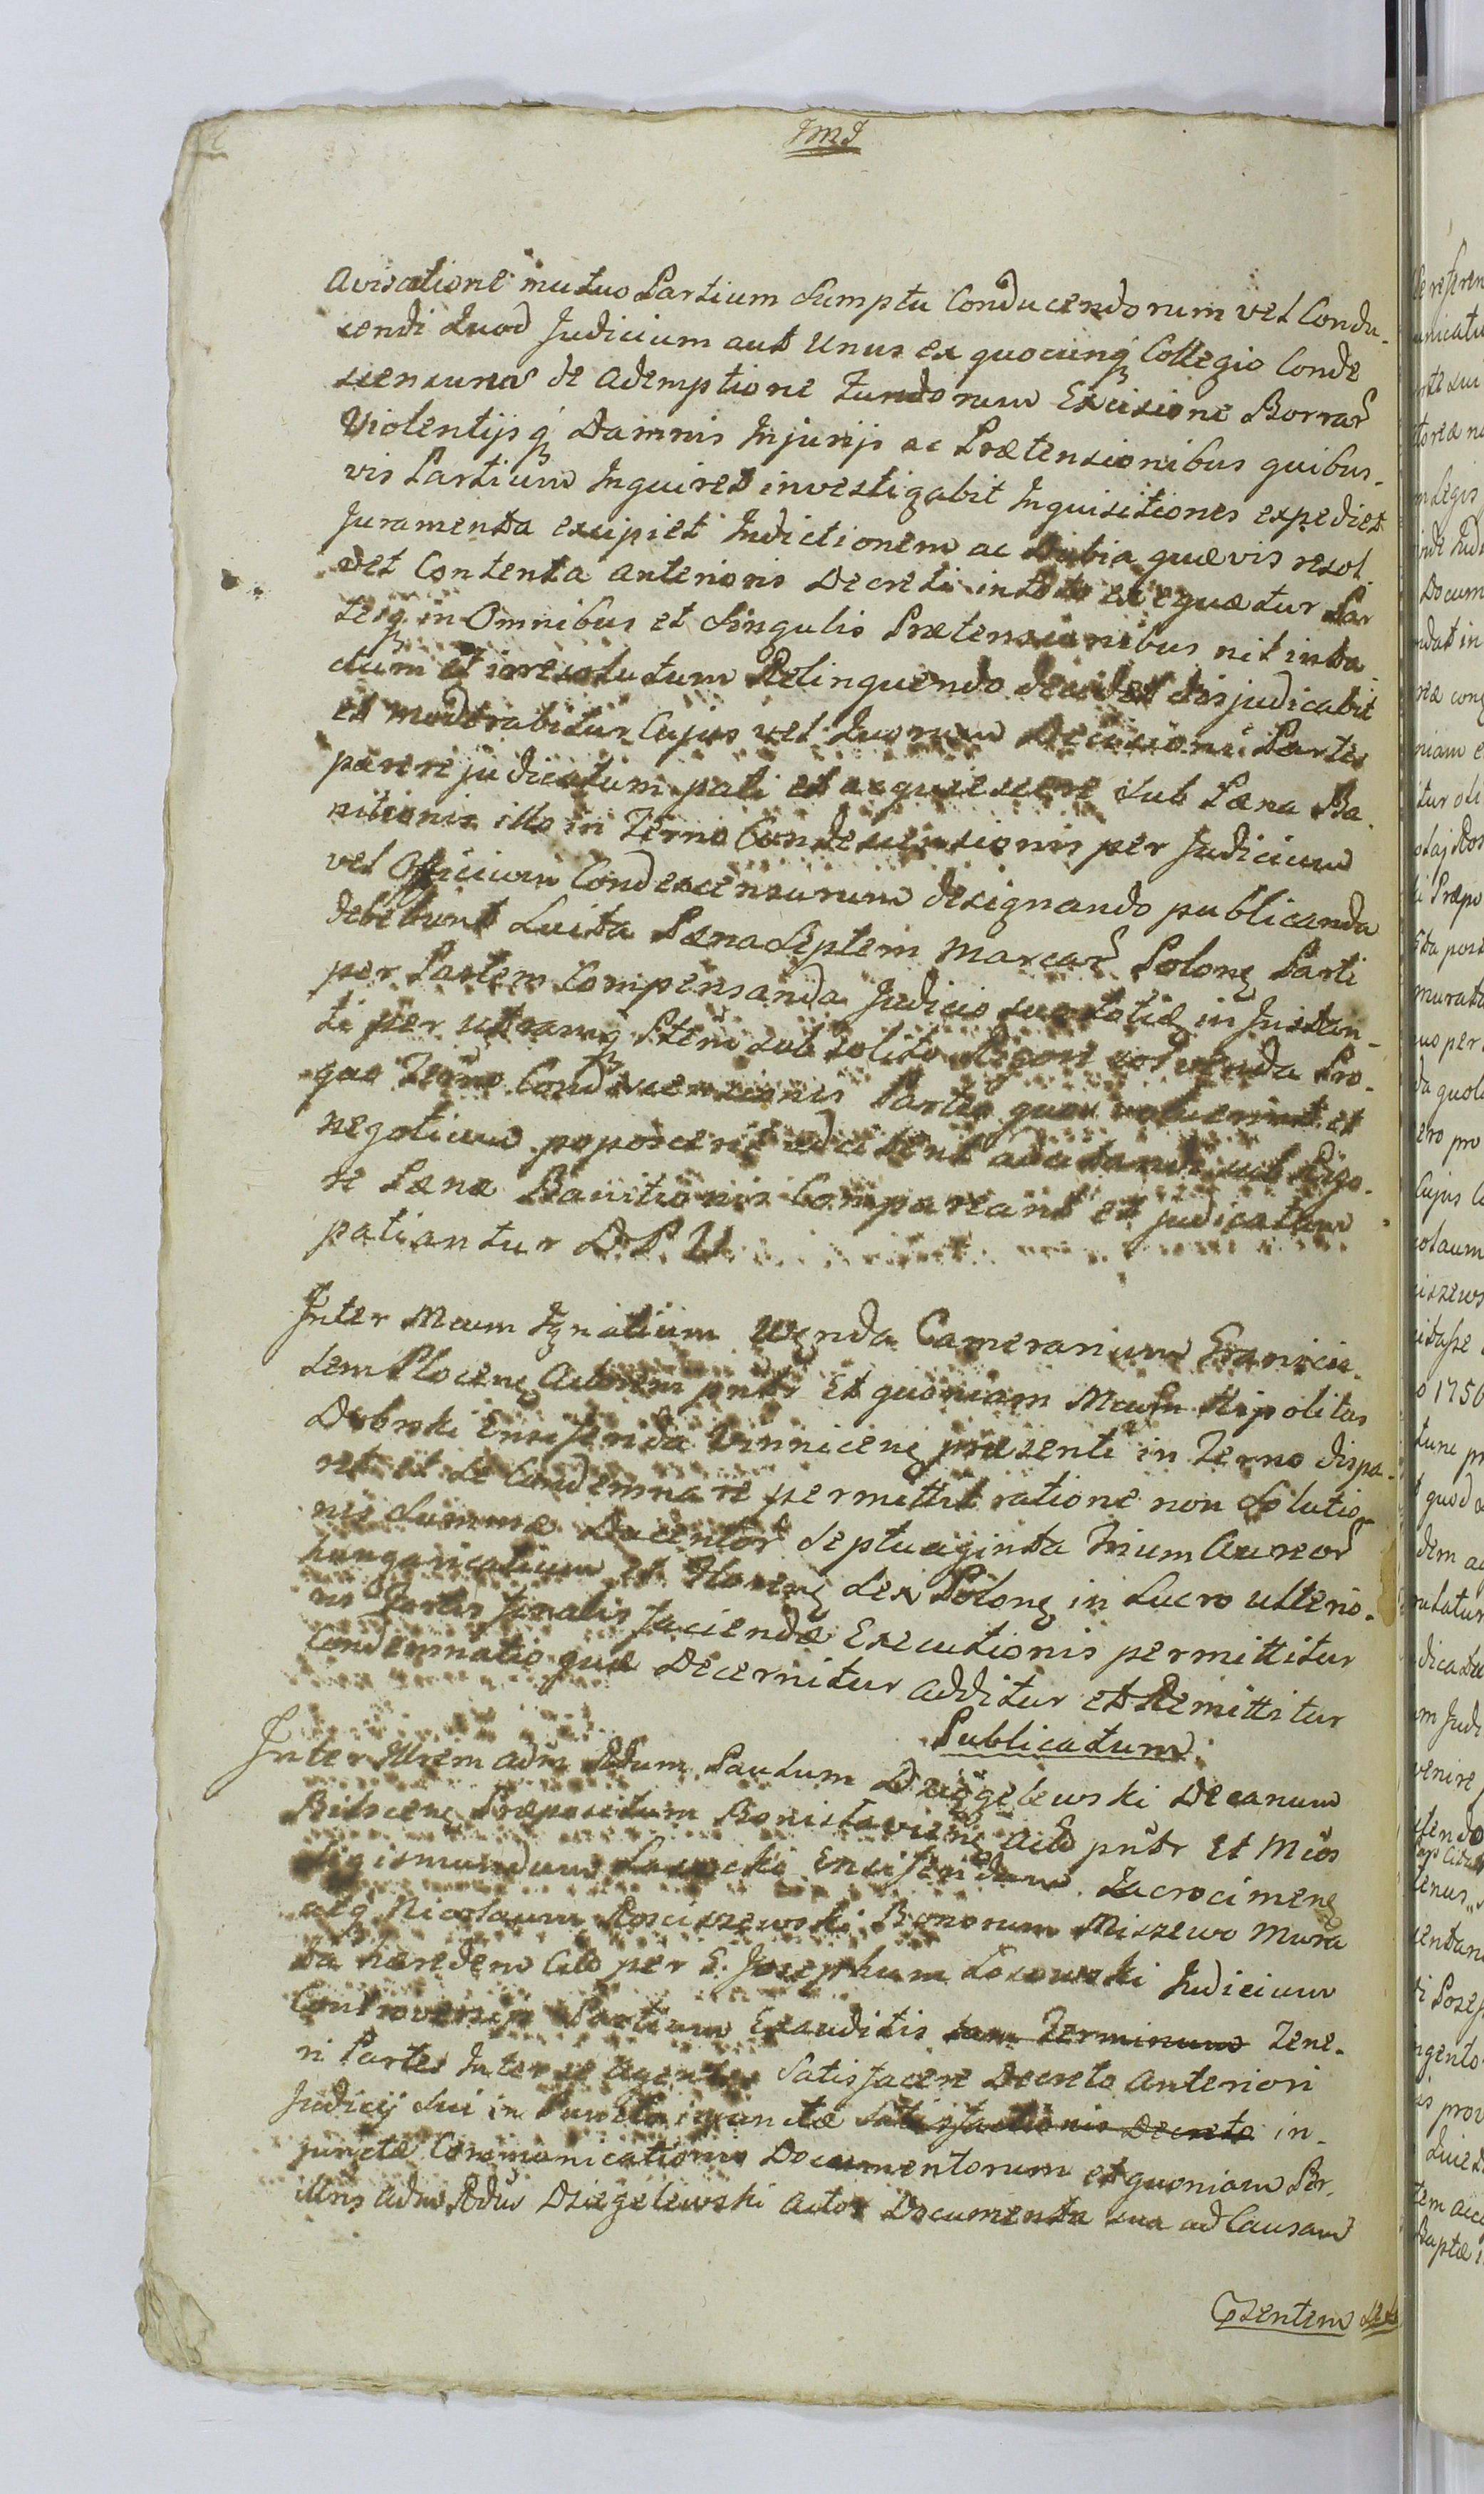 JMJ
avisatione mutuo Partium Sumptu Conducendorum vel Condu-
cendi Quod Judicium aut Unus ex quocunq Collegio Conde
scensuros de ademptione Fundorum Excisione Borrar
Violentijsq Damnis Injurijs ac Prætensionibus quibus-
vis Partium Inquiret investigabit Inquisitiones expediet
Juramenta excipiet Indictionem ac Dubia quævis resol-
vet Contenta anterioris Decreti in toto exequætur Par
tesq in Omnibus et Singulis Prætensionibus nil inta-
ctum et irresolutum Relinquendo decidet disjudicabit
et moderabitur Cujus vel Quorum Decisioni Partes
parere judicatum pati et acquiescere sub Pæna Ba-
nitionis illo in Termo Condescensionis per Judicium
vel Officium Condescensurum designando publicanda
debebunt Luita Pæna Septem Marcar Polong Parti
per Partem Compensanda Judicio suo totid in Instan-
ti per utramq Ptem sub solito Rigore solvenda Pro-
quo Termo Condescensionis Partes quos voluerint et
negotium poposcerit adcitent adcitandi sub Rigo-
re Pæna Banitionis Compareant et judicatum
patiantur D. P. U.
Inter Mcum Ignatium Wenda Camerarium Granicia-
lem Ploceng Actorem pntr Et quoniam Mcus Hipolitus
Dobrski Ensiferida Winniceng præsenti in Termo dispa-
ret et se Condemnare permittit ratione non Solutio-
nis Summæ Ducentor Septuaginta Trium Aureor
hungaricalium et Floreng Sex Polong in Lucro ulterio-
ris Juris finalis faciendæ Executionis permittitur
Condemnatio quæ Decernitur additur et Remittitur
Publicatum
Inter Illrem adm Rdum Paulum Dziegelewski Decanum
Bilsceng Præpositum Bonislavieng Acto pntr Et Mcos
Sigismundum Lasocki Ensiferidam Zacrocimeng
atq Nicolaum Rosciszewski Bonorum Miszewo Mura
ta hæredem Cito per G. Josephum Sosowski Judicium
Controversijs Partium Exauditis tam Terminum Tene-
ri Partes Inter se agentes Satisfacere Decreto Anteriori
Judicij sui in Puncto injunctæ Satisfactionis Decreto in-
junctæ Communicationis Documentorum et quoniam Per-
illris adm Rdus Dziegelewski Actor Documenta sua ad Causam